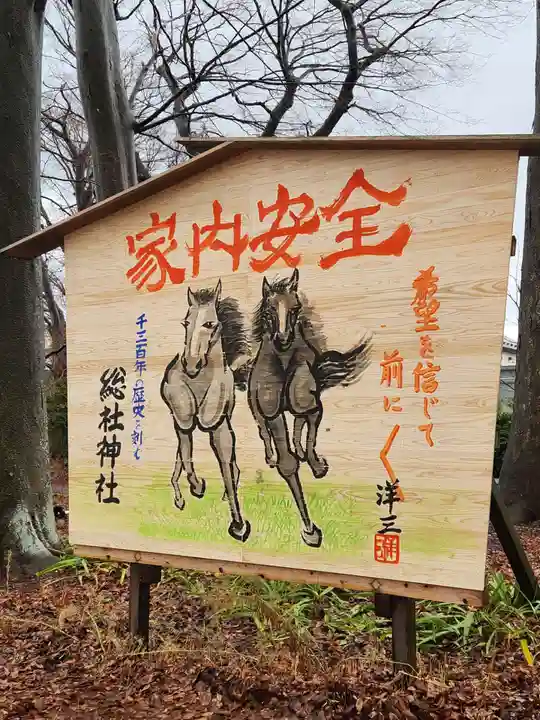 家内安全
希望を信じて
前に
く
洋三
洋
千三百年の歴史を刻む
総社神社